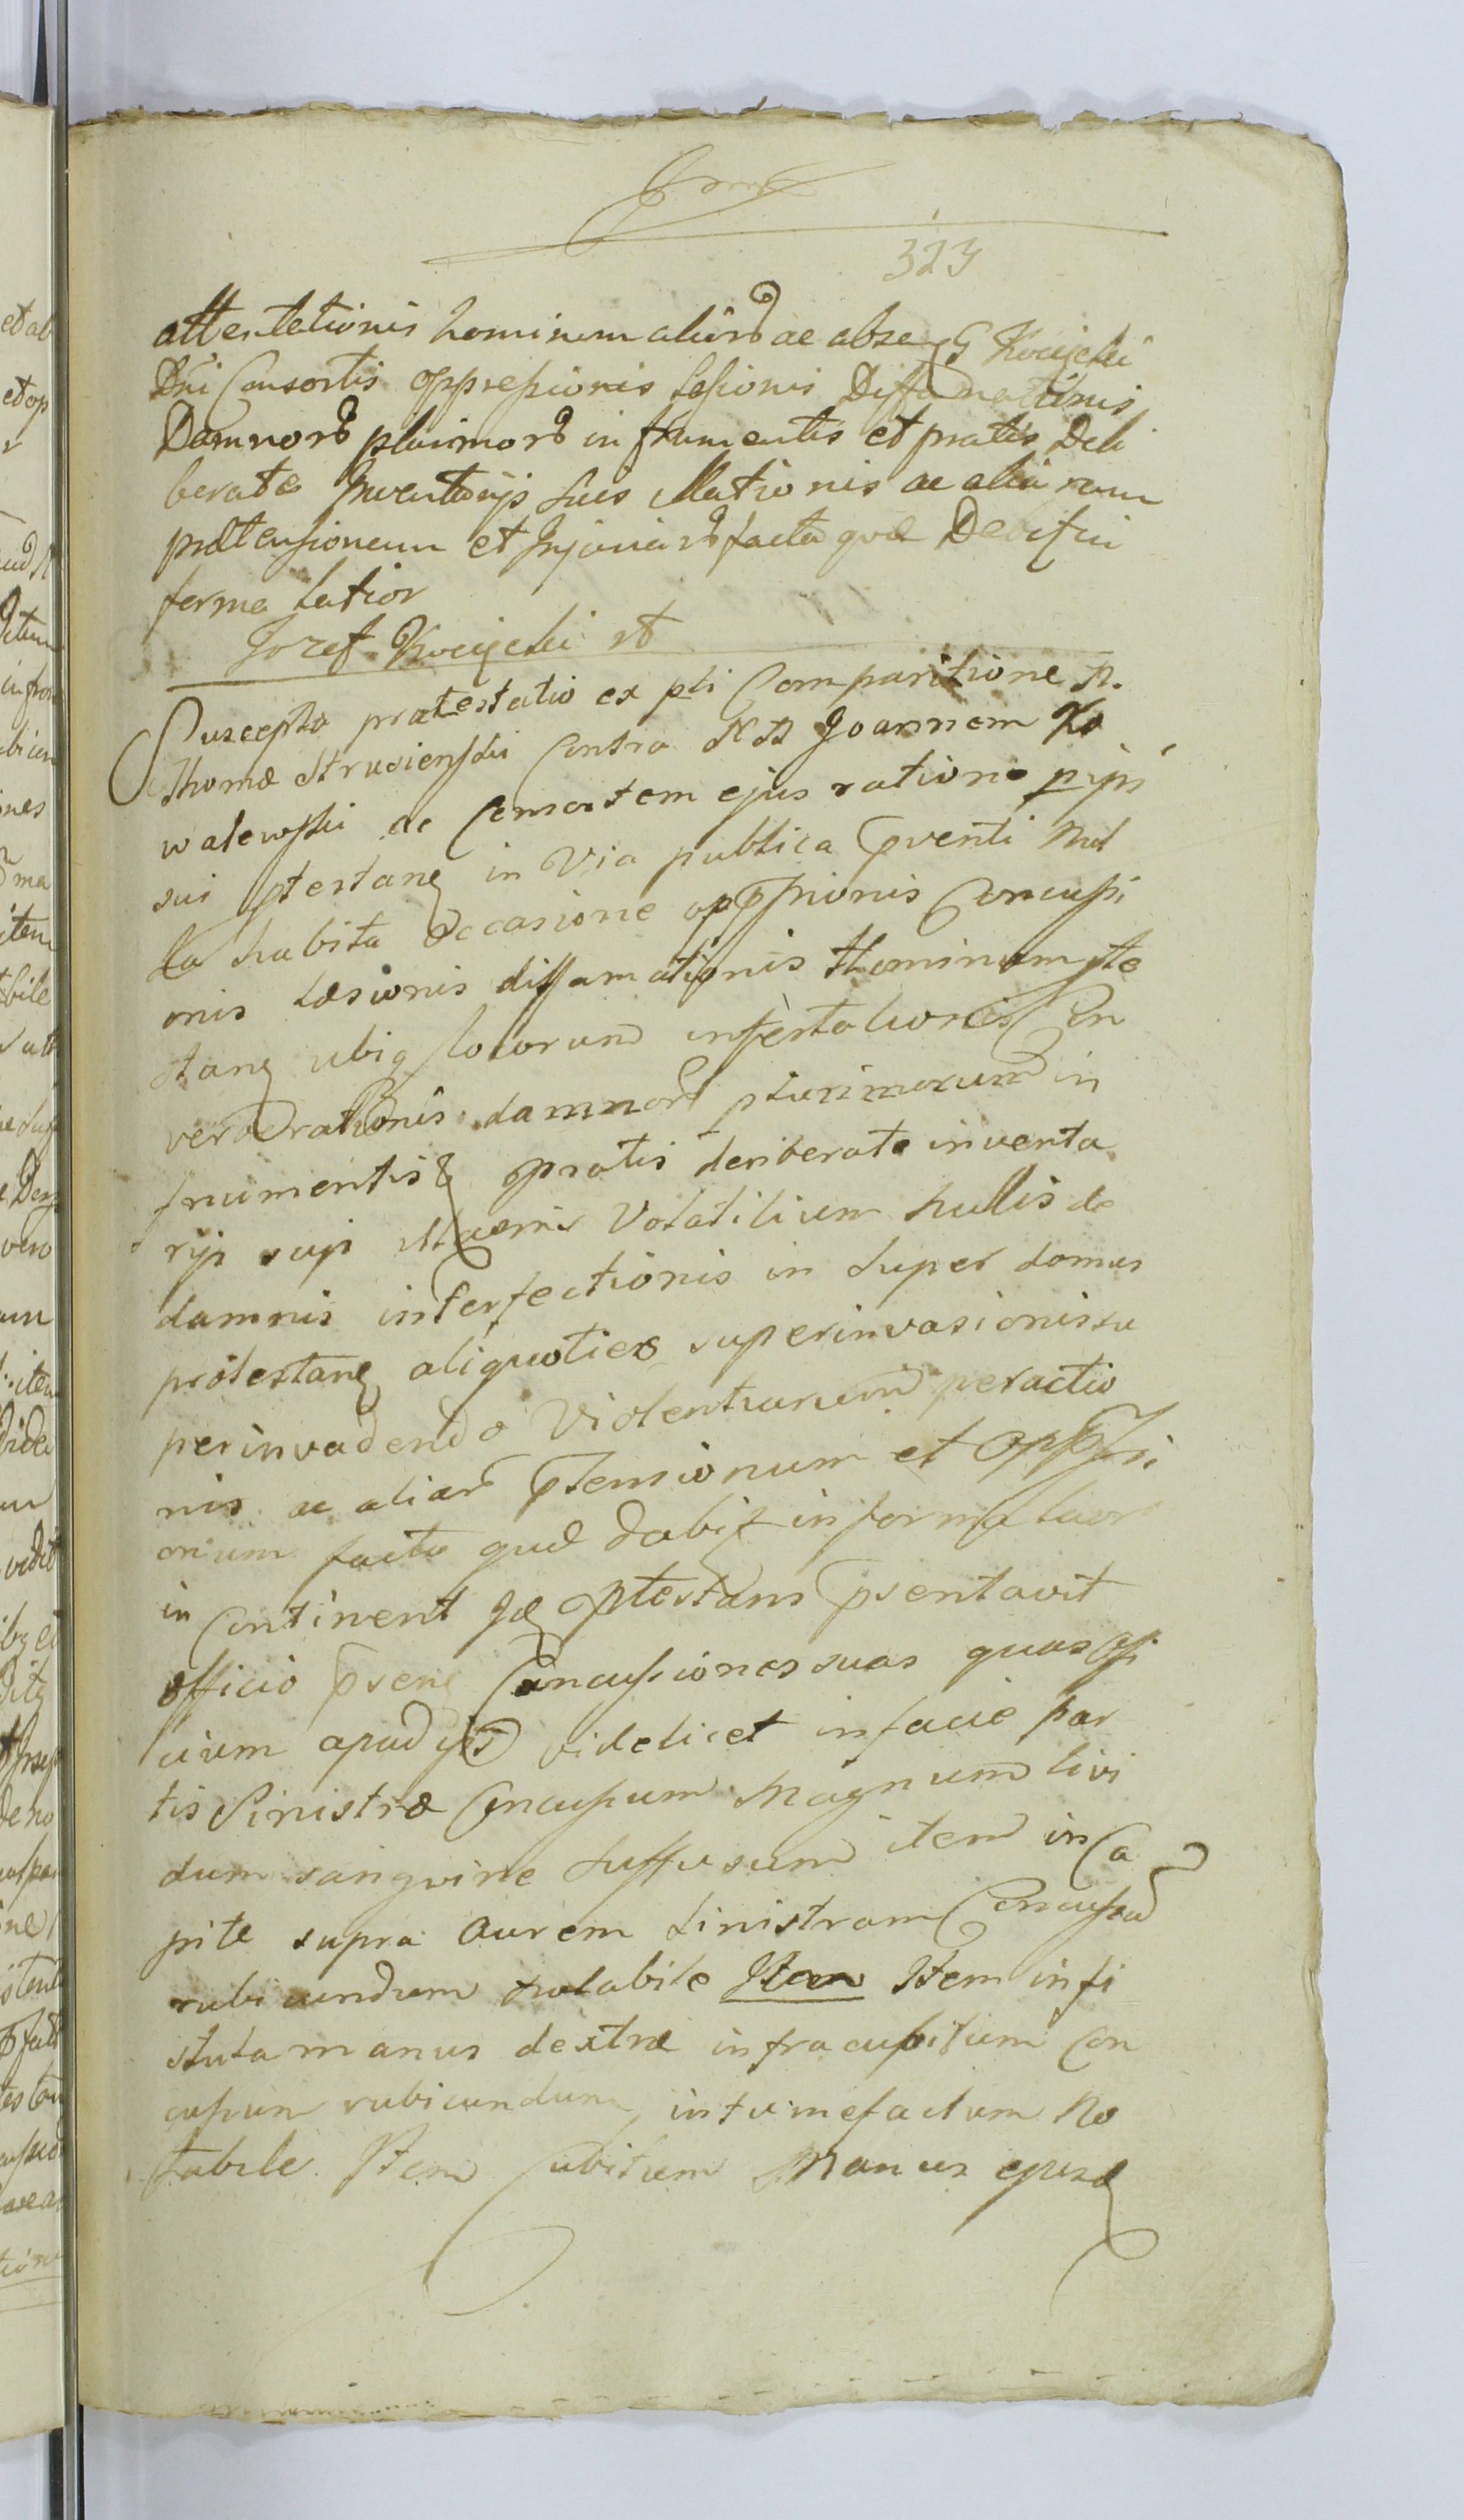 323
attestationis hominum aliord ac absen G Kucijcki
Dni Consortis oppressionis lesionis Diffamationis
Damnord plurimord in frumentis et pratis Deli
berate Inventarijs suis illationis ac aliarum
prætensionum et Injuriard facta quæ Debitur in
forma latior
Jozef Kucijcki
Suscepta protestatio ex pti Comparitione N.
Thomæ Strusienski Contra NN Joannem Ko
walewski ac Consortem ejus ratione pijsi
sui ptestang in Via publica pventi nul
la habita occasione oppssionis Concussi
onis læsionis diffamationis Hominum pte
stang ubiq locorum infestationis Con
verberationis damnord plurimorum in
frumentis & pratis deliberate inventa
rijs suis Volatilium nullis de
damnis interfectionis in super domus
protestang aliquoties superinvasionis su
perinvadendo Violentiarum peractio
nis ac aliard ptensionum et oppssi
onum facta quæ dabit in forma latior
in Continent Id ptestans psentavit
officio pseng Concussiones suas quas offi
cium apud ipsd videlicet in facie par
tis Sinistræ Concussum Magnum livi
dum sanguine suffusum item in Ca
pite supra aurem sinistram Concussum
rubicundum notabile Item Item in fi
stula manus dextræ infra cubitum Con
cussum rubicundum intumefactum No
tabile Item Cubitum Manus ejusd